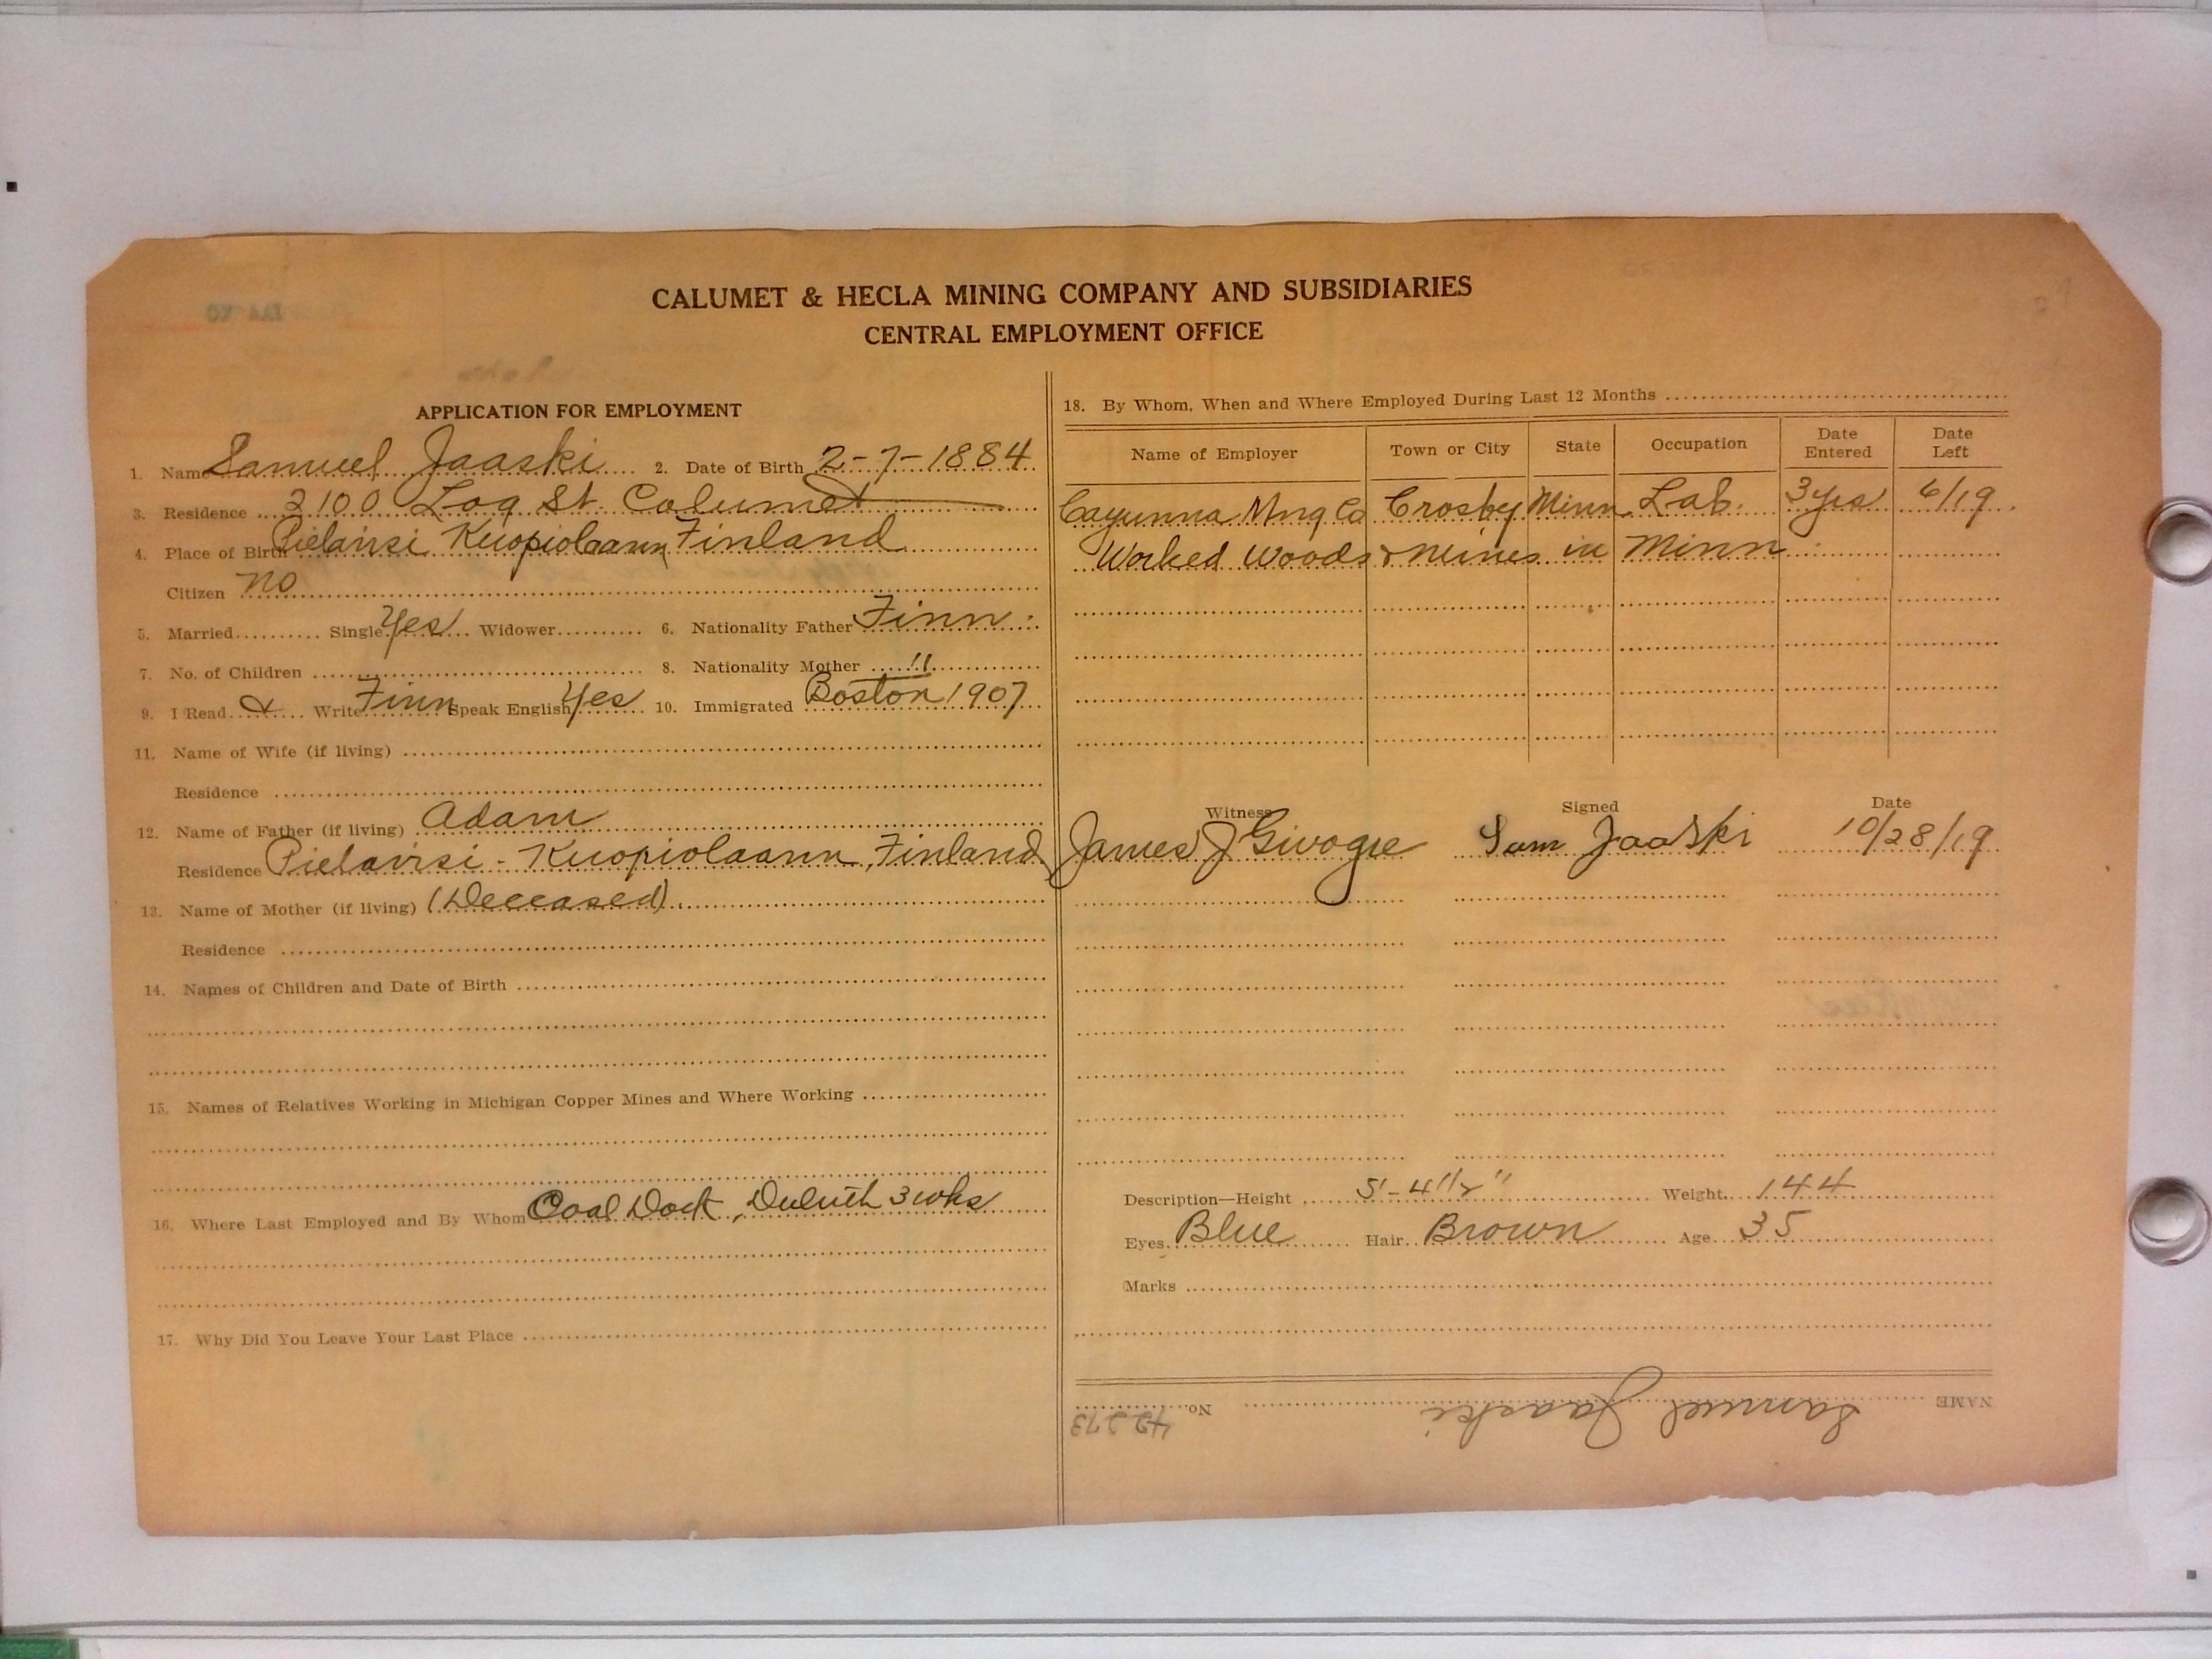 CALUMET & HECLA MINING COMPANY AND SUBSIDIARIES
CENTRAL EMPLOYMENT OFFICE
APPLICATION FOR EMPLOYMENT
1. Name Samuel Jaaski 2. Date of Birth 2-7-1884
3. Residence 2100 Log St. Calumet
4. Place of Birth Pielavisi Kuopiolaann Finland
Citizen no
5. Married Single Yes Widower 6. Nationality Father Finn
7. No. of Children 8. Nationality Mother "
9. I Read & Write Finn Speak English Yes 10. Immigrated Boston 1907
11. Name of Wife (if living)
Residence
12. Name of Father (if living) Adam
Residence Pielavisi - Kuopiolaann, Finland
13. Name of Mother (if living) (Deceased)
Residence
14. Names of Children and Date of Birth
15. Names of Relatives Working in Michigan Copper Mines and Where Working
16. Where Last Employed and By Whom Coal Dock, Duluth 3 wks
17. Why Did You Leave Your Last Place
18. By Whom, When and Where Employed During Last 12 Months
Name of Employer Town or City State Occupation Date Entered Date Left
Cayunna Mng Co Crosby Minn Lab. 3 yrs 6/19
Worked Woods & Mines in Minn
Witness Signed Date
James J Sam Jaaski 10/28/19
Description—Height 5'-4 1/2" Weight 144
Eyes Blue Hair Brown Age 35
Marks
NAME Samuel Jaaski No. 42273